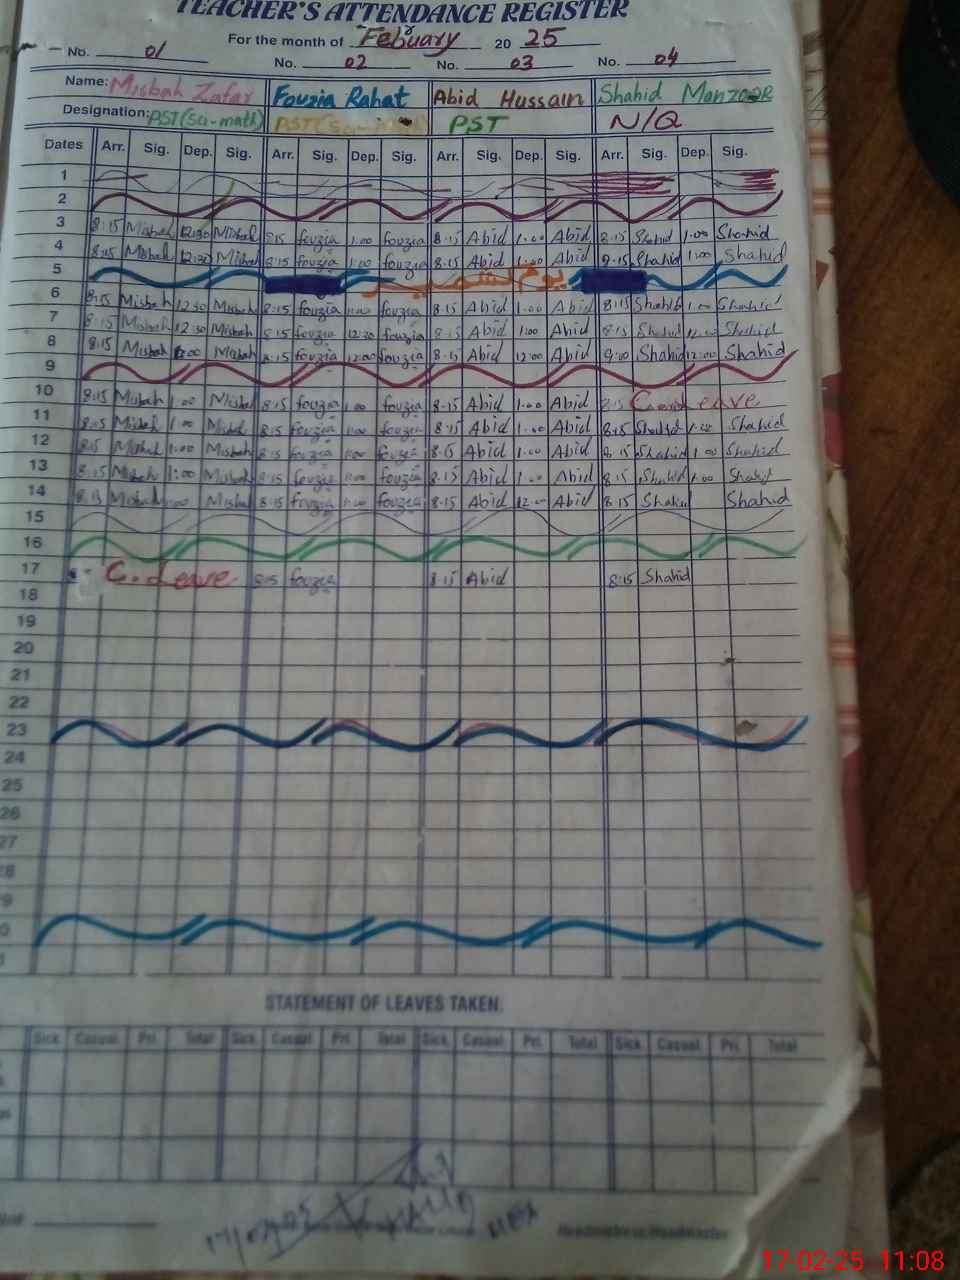 TEACHER'S ATTENDANCE REGISTER
For the month of Febuary 20 25
No. 01 No. 02 No. 03 No. 04
Name: Misbah Zafar Fouzia Rahat Abid Hussain Shahid Manzoor
Designation: PST (Sci-math) PST (Sci- PST N/Q
Dates Arr. Sig. Dep. Sig. Arr. Sig. Dep. Sig. Arr. Sig. Dep. Sig. Arr. Sig. Dep. Sig.
1
2
3 8:15 Misbah 12:30 Misbah 8:15 fouzia 1:00 fouzia 8:15 Abid 1:00 Abid 8:15 Shahid 1:00 Shahid
4 8:15 Misbah 12:30 Misbah 8:15 fouzia 1:00 fouzia 8:15 Abid 1:00 Abid 8:15 Shahid 1:00 Shahid
5 یوم کشمیر
6 8:15 Misbah 12:30 Misbah 8:15 fouzia 1:00 fouzia 8:15 Abid 1:00 Abid 8:15 Shahid 1:00 Shahid
7 8:15 Misbah 12:30 Misbah 8:15 fouzia 12:30 fouzia 8:15 Abid 1:00 Abid 8:15 Shahid Shahid
8 8:15 Misbah 12:00 Misbah 8:15 fouzia 12:00 fouzia 8:15 Abid 12:00 Abid 9:00 Shahid 12:00 Shahid
9
10 8:15 Misbah 1:00 Misbah 8:15 fouzia 1:00 fouzia 8:15 Abid 1:00 Abid Leave
11 8:15 Misbah 1:00 Misbah 8:15 fouzia 1:00 fouzia 8:15 Abid 1:00 Abid 8:15 Shahid 1:00 Shahid
12 8:15 Misbah 1:00 Misbah 8:15 fouzia 1:00 fouzia 8:15 Abid 1:00 Abid 8:15 Shahid 1:00 Shahid
13 8:15 Misbah 1:00 Misbah 8:15 fouzia 1:00 fouzia 8:15 Abid 1:00 Abid 8:15 Shahid 1:00 Shahid
14 8:15 Misbah Misbah 8:15 fouzia 1:00 fouzia 8:15 Abid 12:00 Abid 8:15 Shahid Shahid
15
16
17 C. Leave 8:15 fouzia 8:15 Abid 8:15 Shahid
18
19
20
21
22
23
24
25
26
27
28
9
0
STATEMENT OF LEAVES TAKEN
Sick Casual Pri. Total Sick Casual Pri. Total Sick Casual Pri. Total Sick Casual Pri. Total
Headmistress/Headmaster
17-02-25 11:08